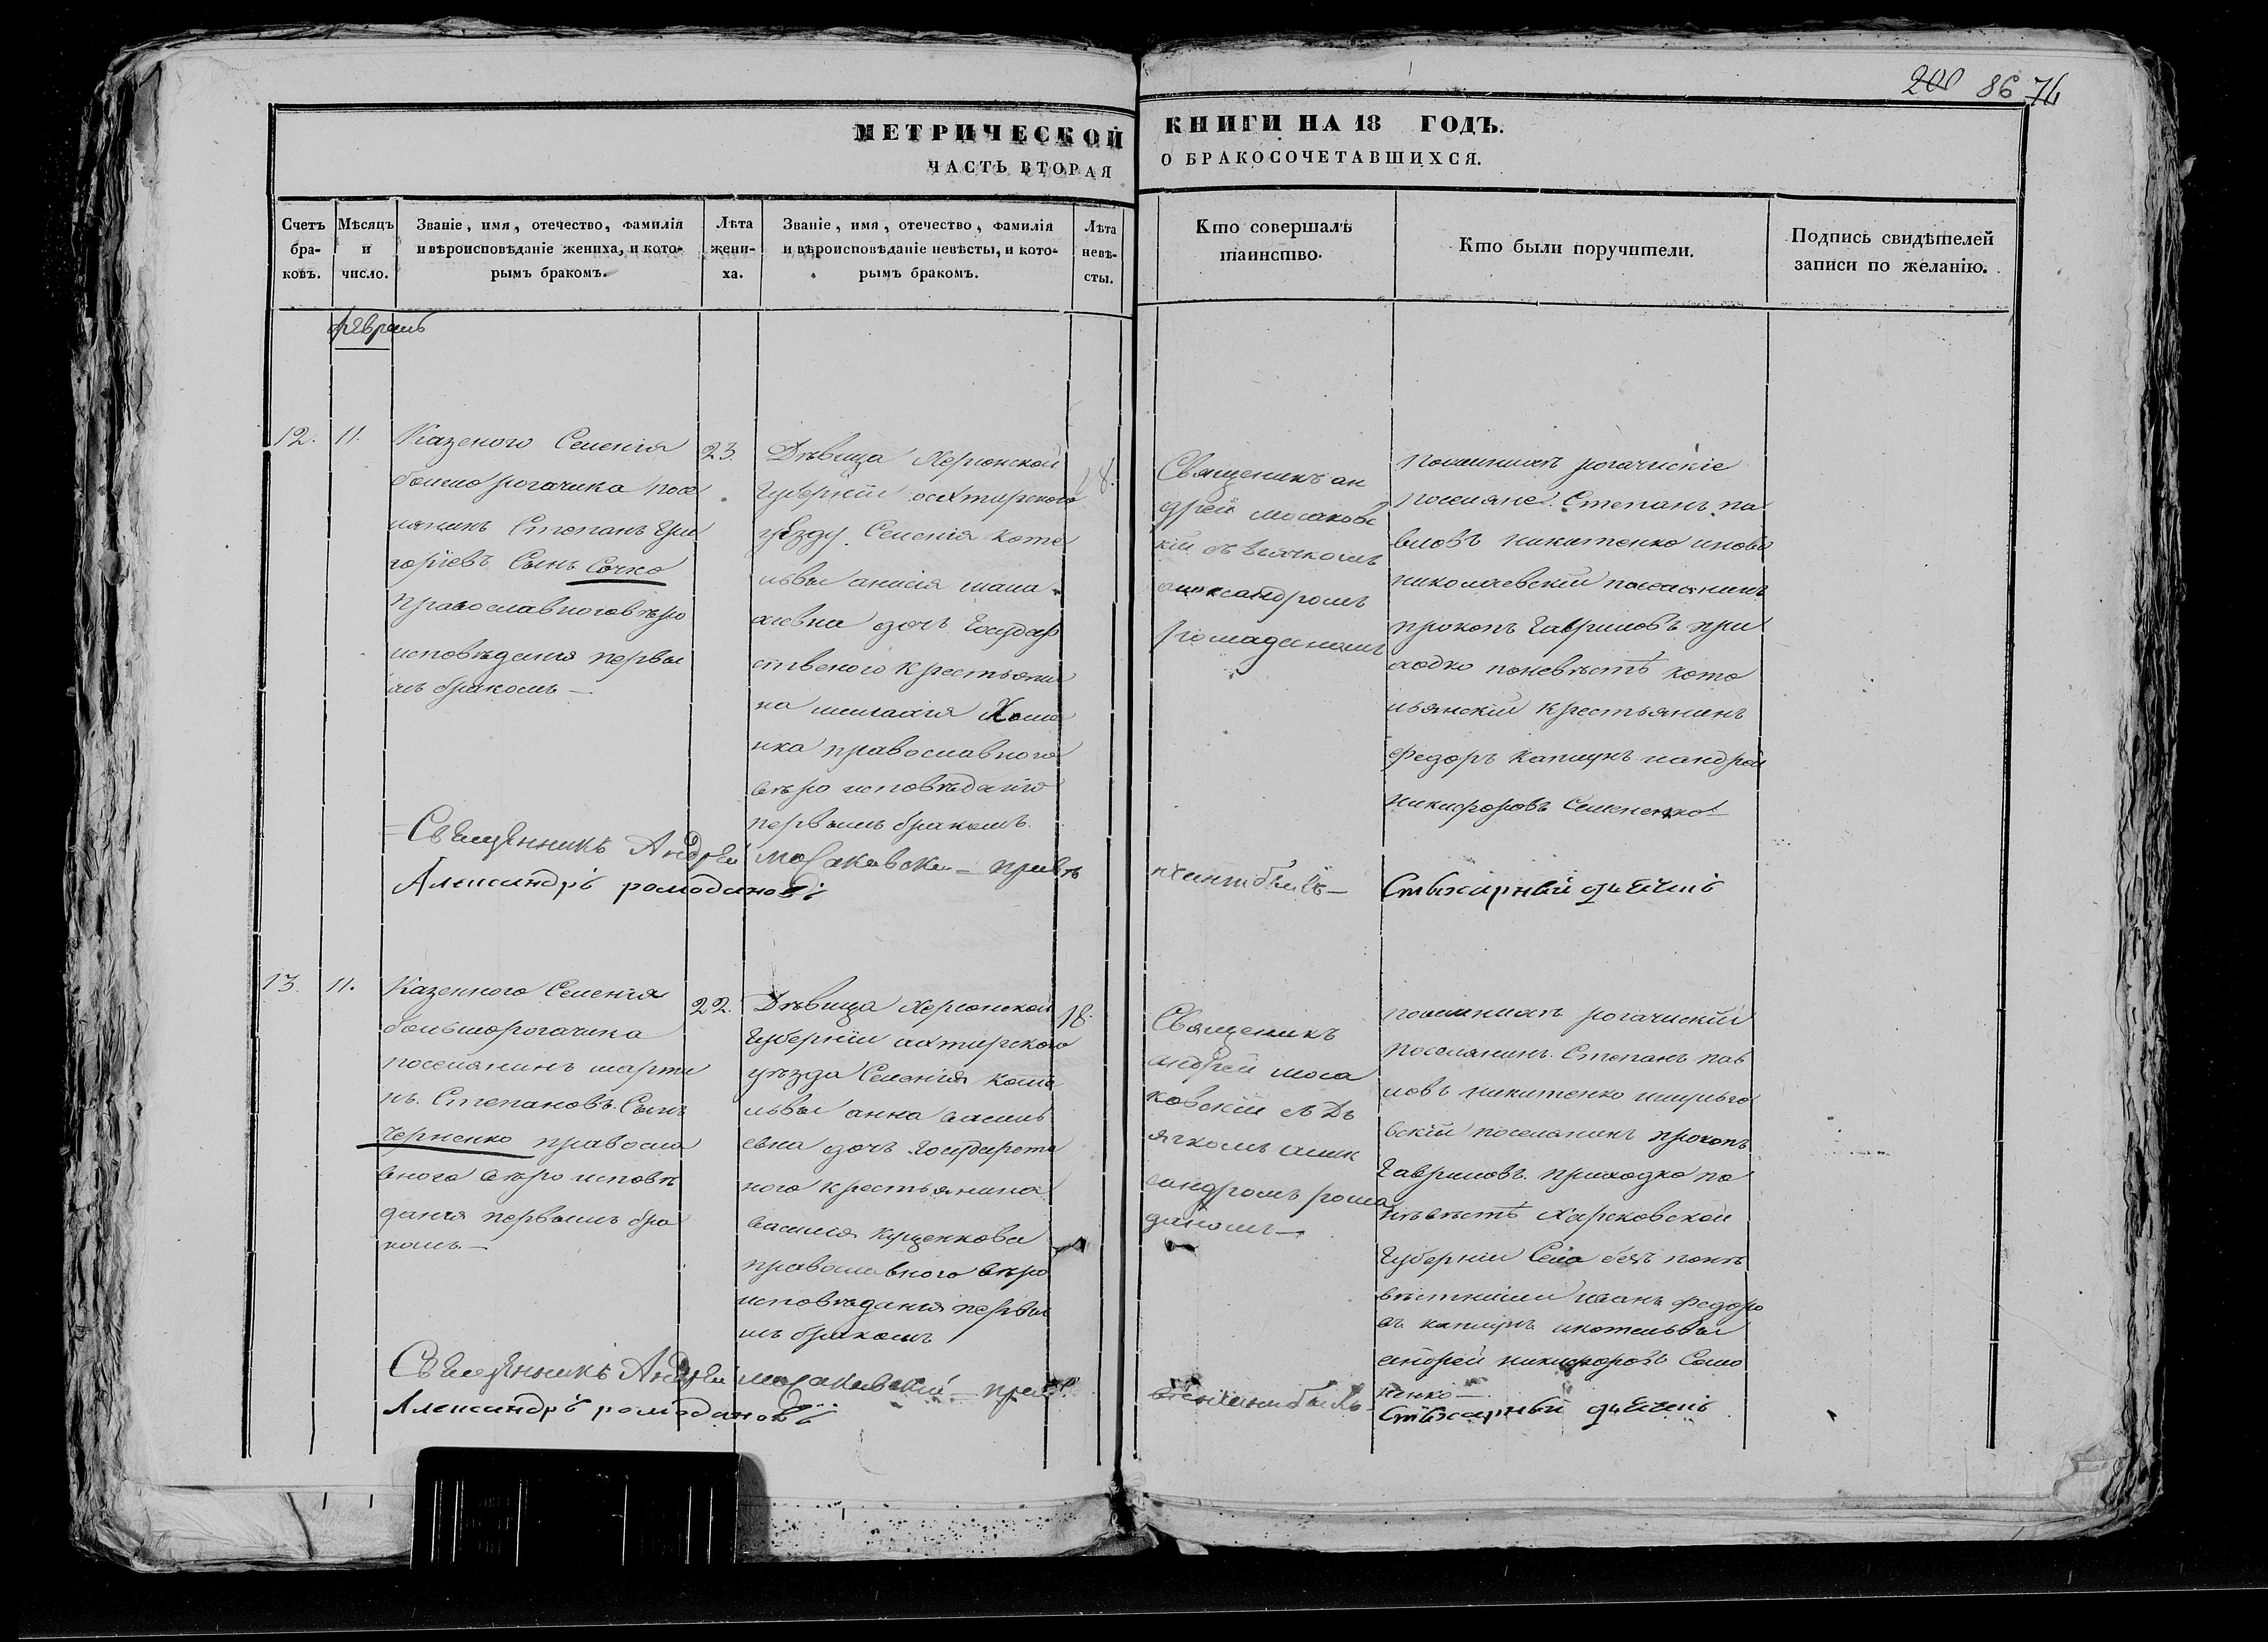 200 86 74
МЕТРИЧЕСКОЙ КНИГИ НА 18 ГОДЪ.
ЧАСТЬ ВТОРАЯ О БРАКОСОЧЕТАВШИХСЯ.
Счетъ
бра-
ковъ.
Мѣсяцъ
и
число.
Званіе, имя, отечество, фамилія
и вѣроисповѣданіе жениха, и кото-
рымъ бракомъ.
Лѣта
жени-
ха.
Званіе, имя, отечество, фамилія
и вѣроисповѣданіе невѣсты, и кото-
рымъ бракомъ.
Лѣта
невѣ-
сты.
Кто совершалъ
таинство.
Кто были поручители.
Подпись свидѣтелей
записи по желанію.
февраль
12.
11.
Казеного Селенія
болшо рогачика посе
лянинъ Степанъ Гри
горіевъ Сынъ Сочка
православноговѣро
исповѣданія первы
мъ бракомъ —
23.
Дѣвица Херсонской
Губерніи
уѣзду Селенія коте
львы анисія
дочь Государ
ственого крестьяни
на Хоме
нка православного
вѣро исповѣданія
первымъ бракомъ.
18.
Священикъ ан
дрей мосаковс
кій
александромъ
ромаданомъ
поженихѣ рогачискіе
поселяне. Степанъ па
вловъ никитенко иново
николаевскій поселянинъ
прокопъ Гавриловъ при
ходко поневѣстѣ коте
львянскій крестьянинъ
федоръ каплунъ иандрей
никифоровъ Семененко
Священникъ Андрей мосаковски — при
Александръ ромодановъ
Стихарный дьячикъ
13.
11.
Казенного Селенія
большорогачика
поселянинъ марти
нъ. Степановъ. Сынъ
черненко правосла
вного вѣро исповѣ
данія первымъ бра
комъ. —
22.
Дѣвица Херсонской
Губерніи ахтирского
уѣзда Селенія коте
львы анна василь
евна дочь Государстве
ного крестьянина
василія кущенкова
православного вѣро
исповѣданія первы
мъ бракомъ
18.
Священикъ
андрей моса
ковскій съ Дь
ячкомъ алек
сандромъ рома
даномъ —
поженихѣ рогачискій
поселянинъ. Степанъ пав
ловъ никитенко
поселянинъ прокопъ
Гавриловъ. приходко по
невѣстѣ Харсковской
Губерніи Села
иванъ федоро
въ каплунъ икотельвы
андрей никифоровъ Семе
ненко —
Священникъ Андрей мосаковский —
Александръ ромодановъ
Стихарный дьячикъ